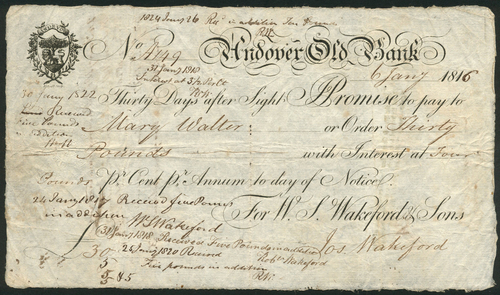 1824 Jany 26 Recd in addition Ten Pounds
RW
ANDOVER
Andover Old Bank
No
31 Jany 1818
Interest at 3½ Pr Ct
RW
6 Jany 1816
30 Jany 1822
Received
Five Pounds
in addition
Thirty Days after Sight I Promise to pay to
Mary Walter or Order Thirty
Pounds with Interest at Four
Pounds Pr. Cent Pr. Annum to day of Notice.
24 Jany 1817 Received five Pounds
in addition
WS Wakeford
For W. S. Wakeford & Sons
31 Jany 1818
Received Five Pounds in addition
Robt Wakeford
Jos Wakeford
26 Jany 1820 Received
Five pounds in addition
RW
30
5
5
5
45